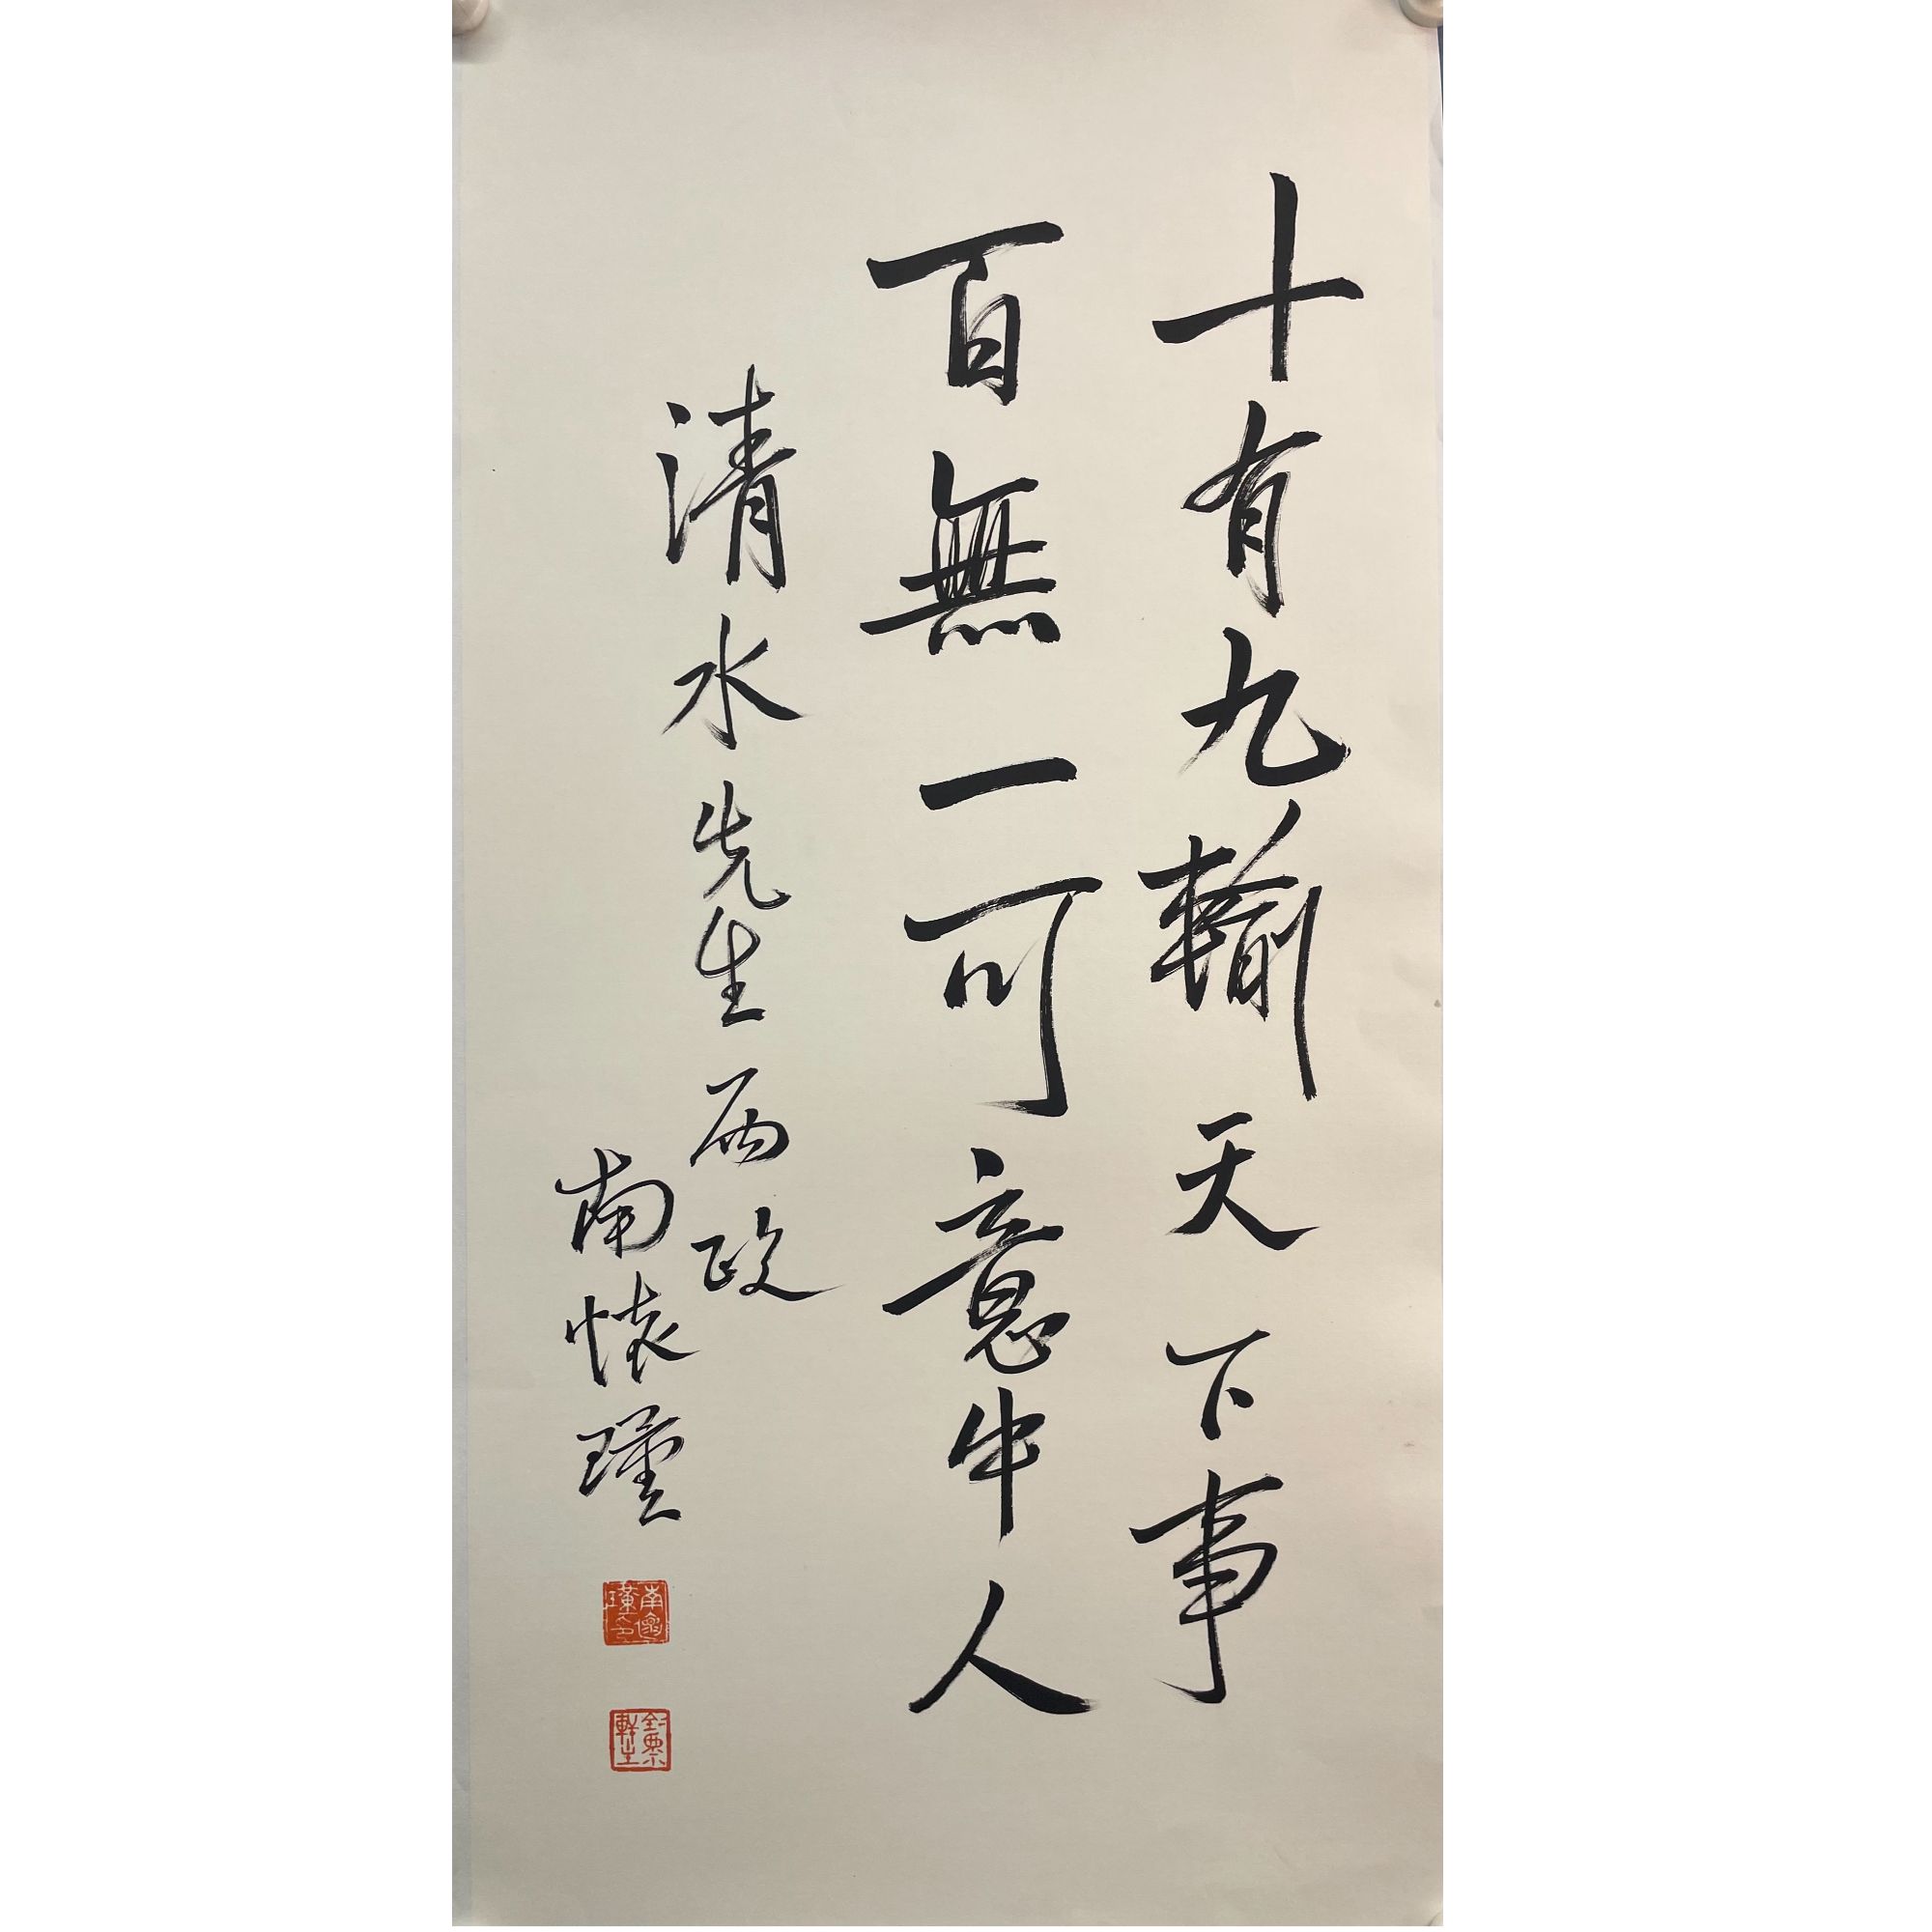 十有九輸天下事
百無一可意中人
清水先生兩政
南懷瑾
南懷瑾印